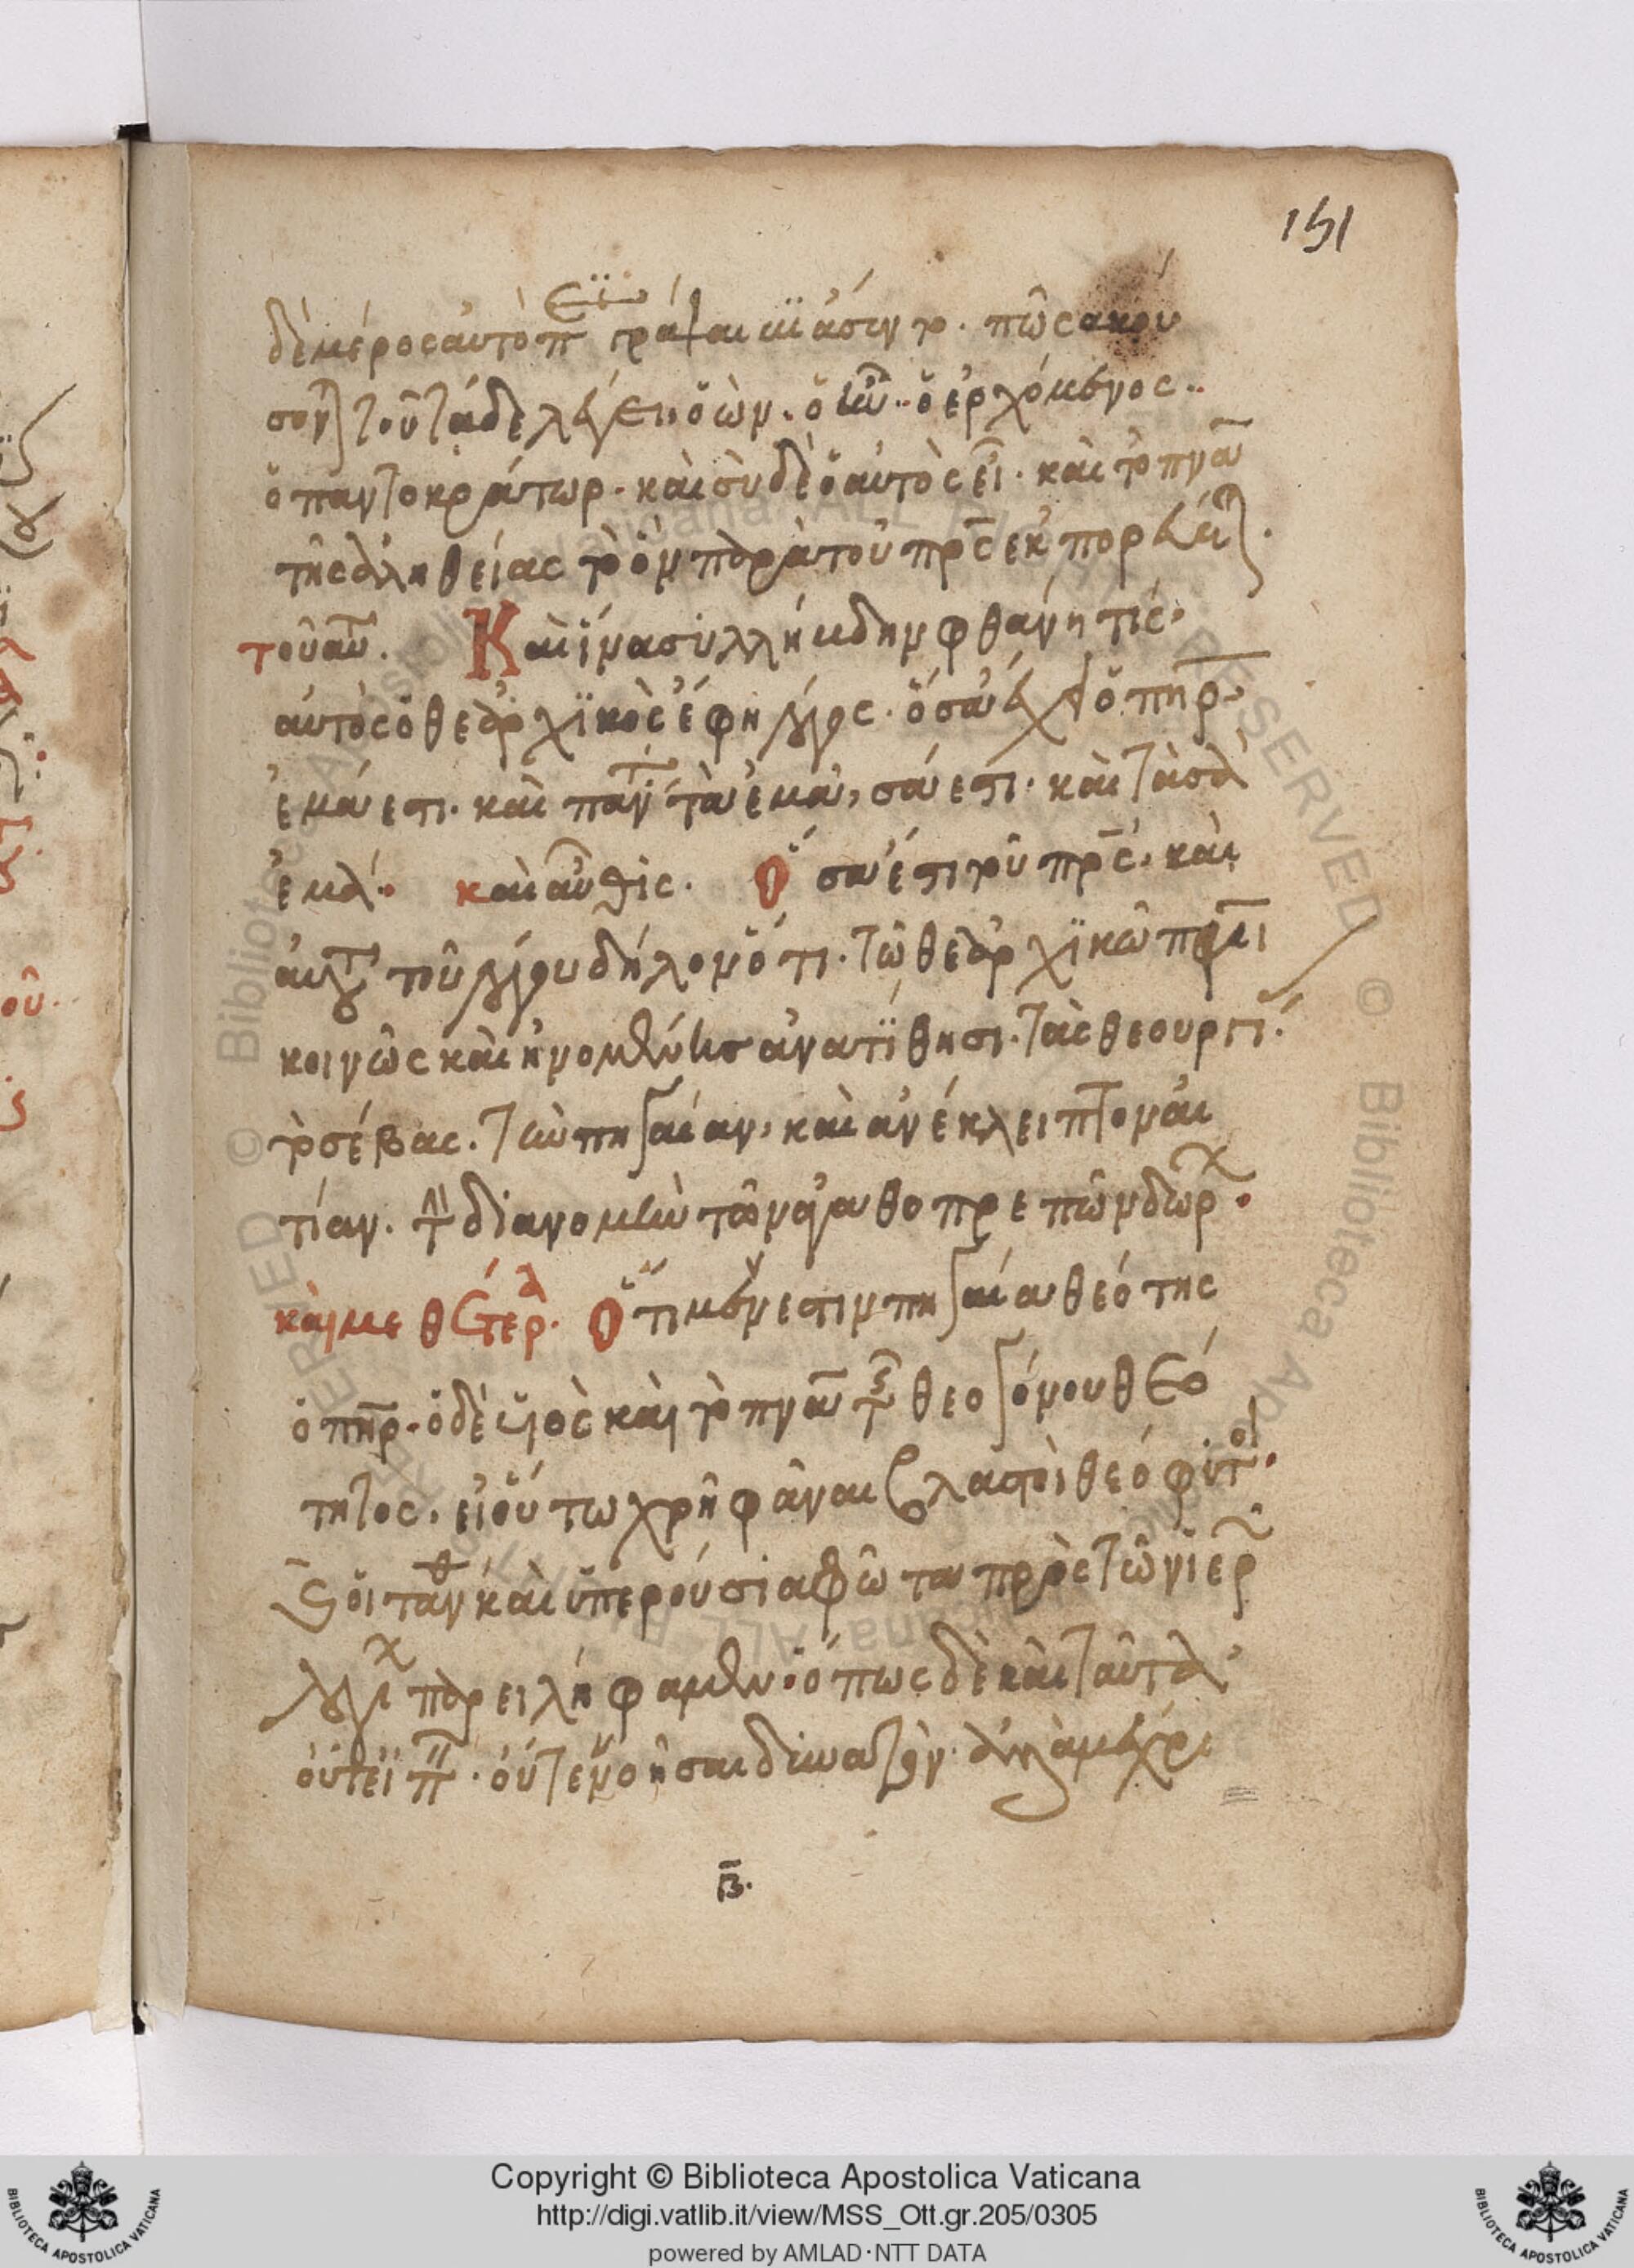 151
δὲ μέρος αὐτὸ π πῶς ἀκού
τοῦ τάδε λέγει ὁ ὢν· ὁ ἦν·· ὁ ἐρχόμενος··
ὁ παντοκράτωρ· καὶ σὺ δὲ ὁ αὐτὸς εἶ· καὶ τὸ πνᾱ
τῆς ἀληθείας τὸ ὂν παρὰ τοῦ πρς ἐκπορευ
τοῦ αυ. Καὶ ἵνα συλλήβδην φθάνη τίς·
αὐτὸς ὁ θεαρχϊκὸς ἔφη λόγος· ὅσα ἔχει ὁ πηρ·
ἐμά εστι· καὶ παν τὰ ἐμὰ, σά εστι· καὶ τὰ σὰ
ἐμά· καὶ αὖθις· Ὅσα ἐστι τοῦ πρς· καὶ
τοῦ λόγου δηλονότι· τῶ θεαρχϊκῶ πνι
κοινῶς καὶ ἡνομένως ἀνατίθησι· τὰς θεουργί
τὸ σέβας· τὴν πηγαίαν, καὶ ἀνέκλειπτον αἰ
τίαν· τ διανομὴν τῶν ἀγαθοπρεπῶν δωρ·
καὶ μεθ ετερ· Ὅτι μέν εστιν πηγαία θεότης
ὁ πηρ· ὁ δὲ υἱὸς καὶ τὸ πνᾱ τ θεογόνου θεό
τητος· εἰ οὕτω χρὴ φάναι βλαστοὶ θεόφυτ·
καὶ οἷον καὶ ὑπερούσια φῶτα πρὸς τῶν ἱερ
λογι παρειλήφαμεν· ὅπως δὲ καὶ ταῦτα
οὔτε εἰπ· οὔτε ἐννοῆσαι δυνατὸν· ἀλλὰ μέχρι
β.
Copyright © Biblioteca Apostolica Vaticana
http://digi.vatlib.it/view/MSS_Ott.gr.205/0305
powered by AMLAD·NTT DATA